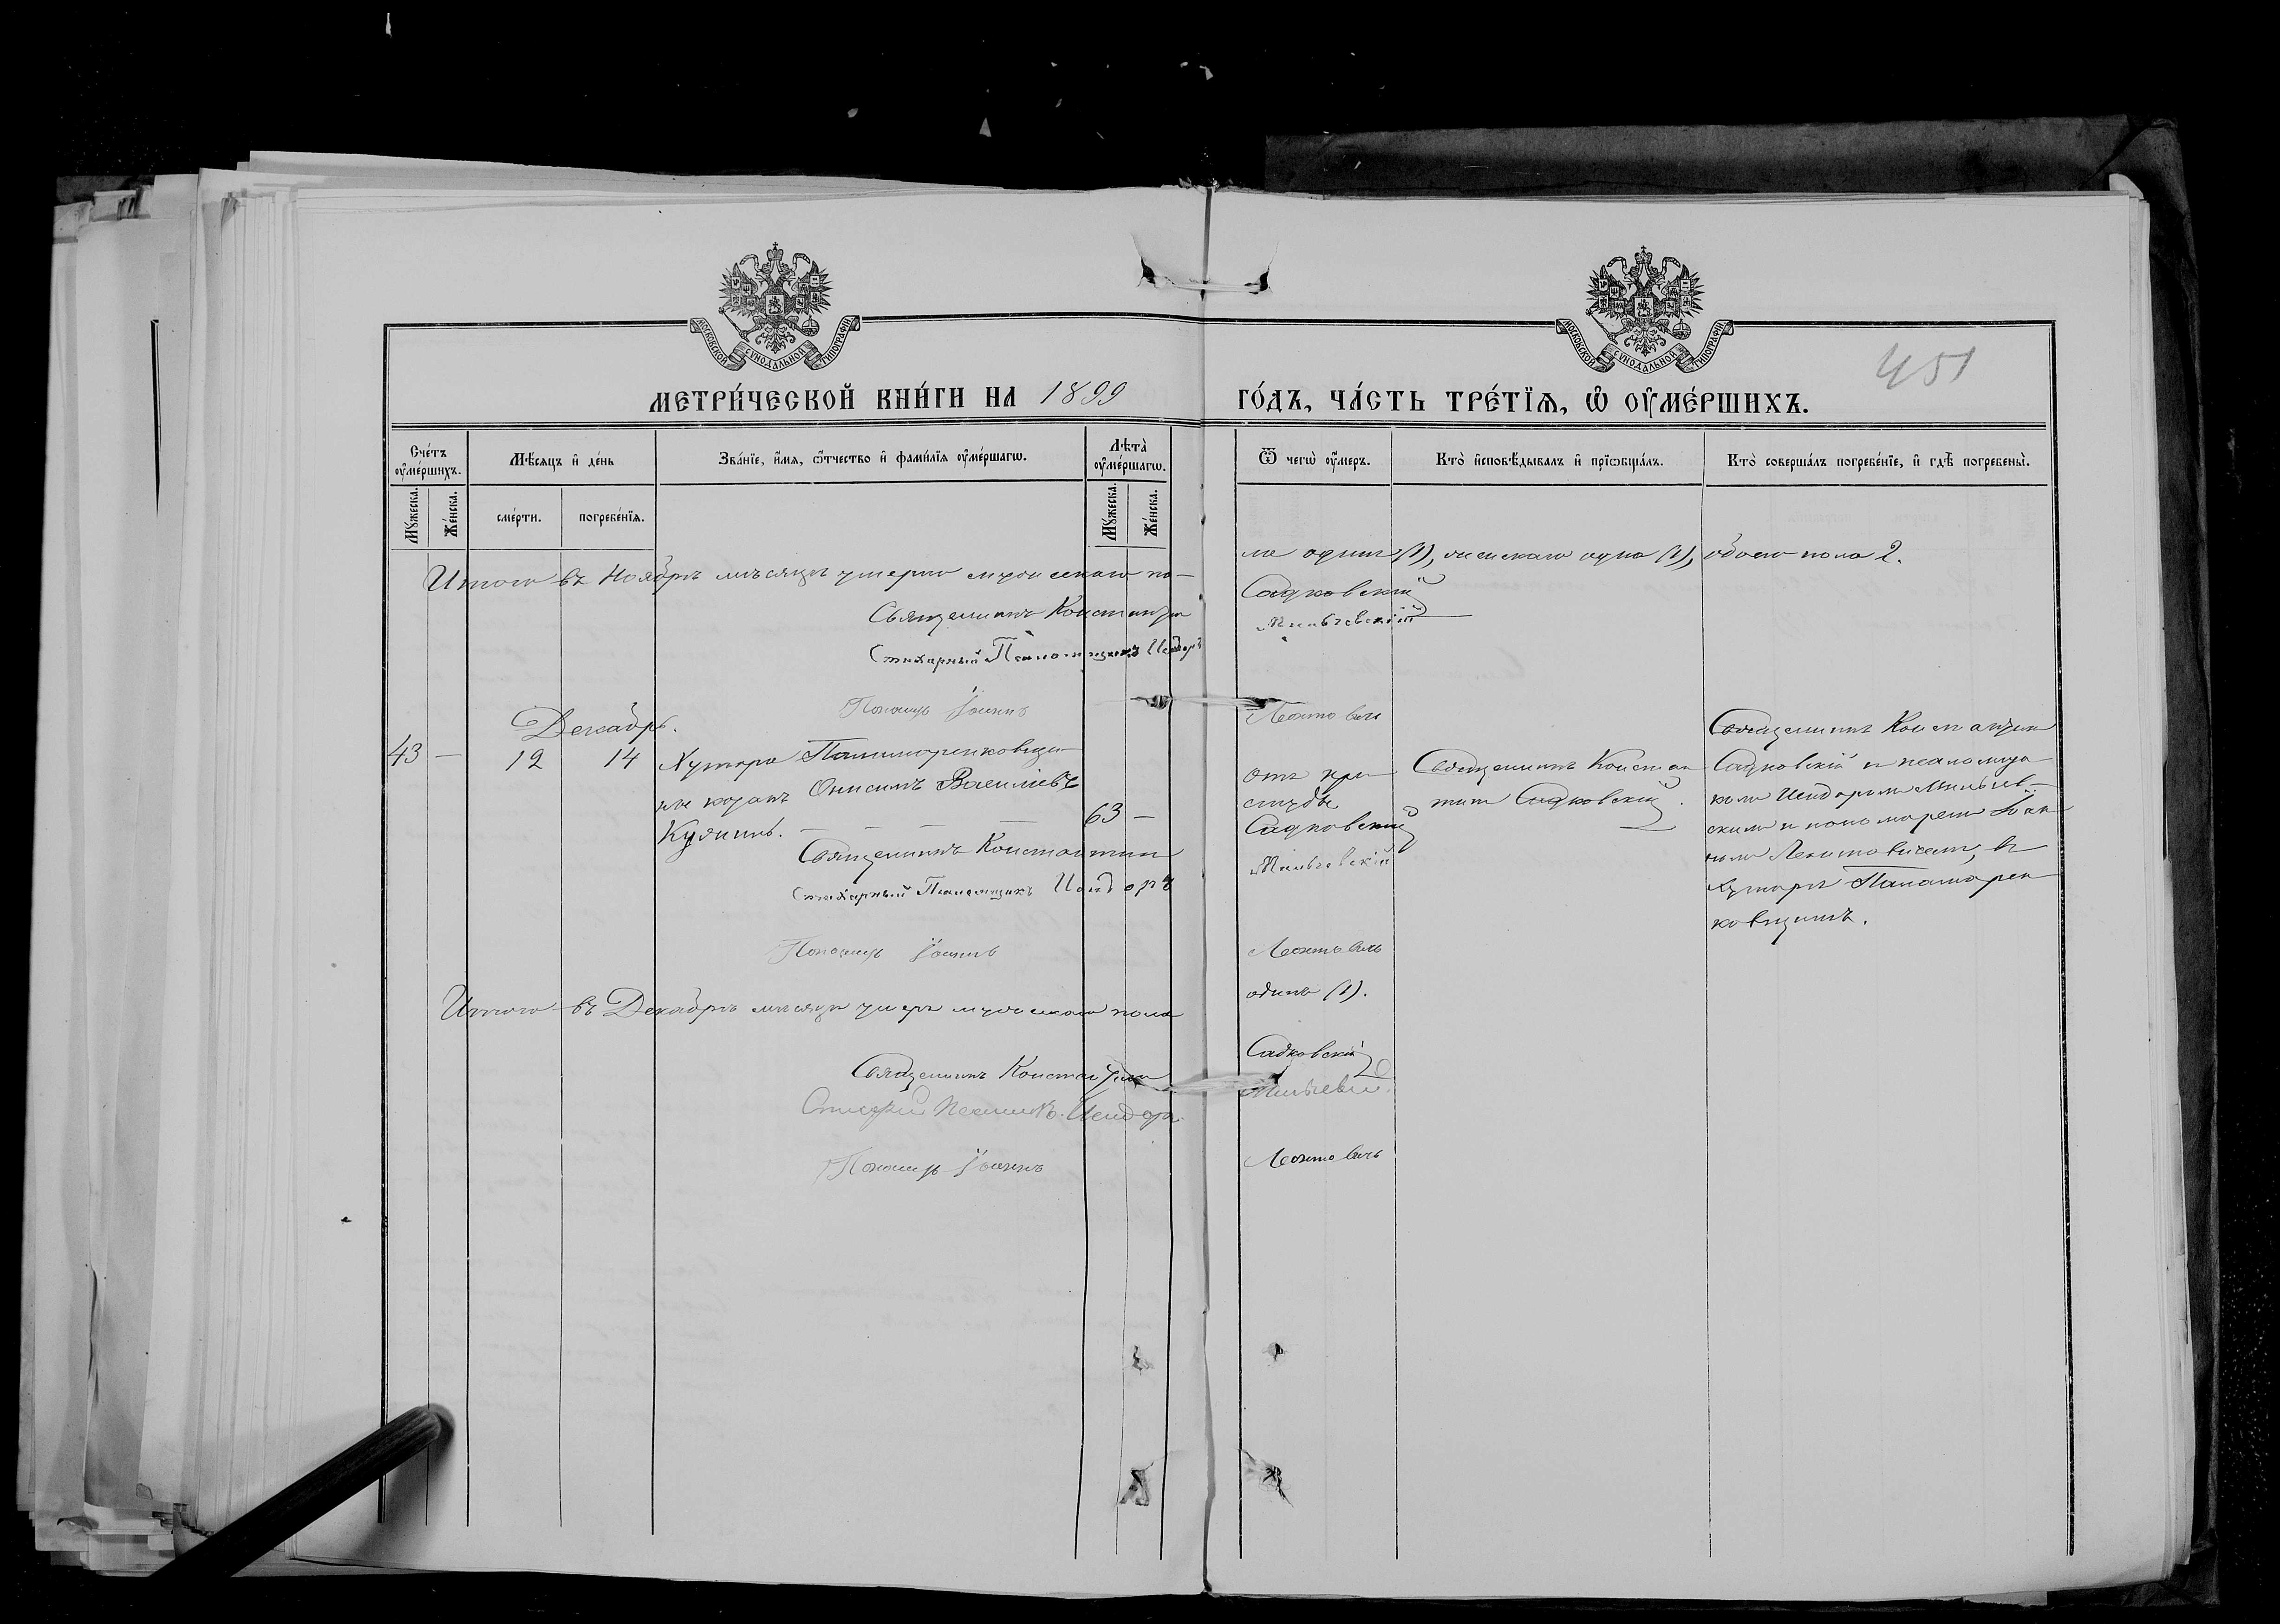 МОСКОВСКОЙ СѴНОДАЛЬНОЙ ТИПОГРАФІИ
МОСКОВСКОЙ СѴНОДАЛЬНОЙ ТИПОГРАФІИ
451
МЕТРИ́ЧЕСКОЙ КНИ́ГИ НА 1899 ГО́ДЪ, ЧА́СТЬ ТРЕ́ТЇѦ, Ѡ҆ ОУ҆МЕ́РШИХЪ.
Сче́тъ оу҆ме́ршихъ.
Мꙋ́жеска.
Же́нска.
Мѣ́сяцъ и҆ де́нь
сме́рти.
погребе́нїѧ.
Зва́нїе, и҆́мѧ, ѻ҆́тчество и҆ фами́лїѧ оу҆ме́ршагѡ.
Лѣта̀ оу҆ме́ршагѡ.
Мꙋ́жеска.
Же́нска.
Ѿ чегѡ̀ оу҆́меръ.
Кто̀ и҆сповѣ́дывалъ и҆ прїѡбща́лъ.
Кто̀ соверша́лъ погребе́нїе, и҆ гдѣ̀ погребены̀.
Итого въ Ноябрѣ мѣсяцѣ умерло мужескаго по-
ла одинъ (1), женскаго одна (1), обоего пола 2.
Священникъ Константин Садковскій
Стихарный Псаломщикъ Исидоръ Мильчевскій
Пономарь Іоаннъ Леонтовичъ
Декабрь.
43 — 12 14
Хутора
не козакъ Онисимъ Василіевъ
63 —
отъ про
студы
Священникъ Констан
тинъ Садковскій.
Священникъ Константин
Садковскій и псаломщи
комъ Исидоромъ Мильчев
скимъ и пономаремъ Іоан
номъ Леонтовичемъ, въ
хуторѣ
ковщинѣ.
Священникъ Константин Садковскій
Стихарный Псаломщикъ Исидоръ Мильчевскій
Пономарь Іоаннъ Леонтовичъ
Итого въ Декабрѣ мѣсяцѣ умеръ мужескаго пола одинъ (1).
Священникъ Константин Садковскій
Исидоръ
Пономарь Іоаннъ Леонтовичъ